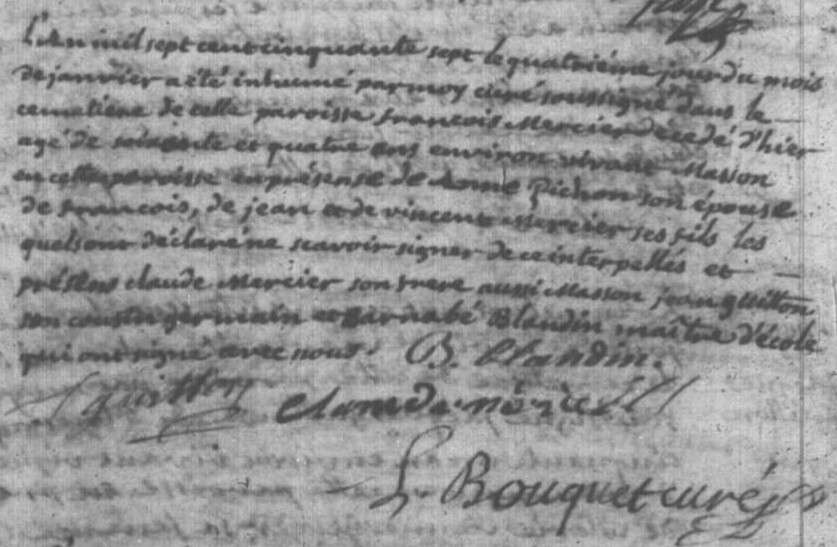 L'an mil sept cent cinquante sept le quatriéme jour du mois
de janvier a été inhumé par moy curé soussigné dans le
cemetiere de cette paroisse francois Mercier décédé d'hier
agé de soixante et quatre ans environ vivant Masson
en cette paroisse en présense de Anne Pichon son épouse
de francois, de jean et de vincent Mercier ses fils les
quels ont déclaré ne scavoir signer de ce interpellés et
présens claude Mercier son frere aussi Masson jean guitton
son cousin germain et Barnabé Blandin maître d'école
qui ont signé avec nous. B. Blandin.
J guitton
Claude
L. Bouquet curé